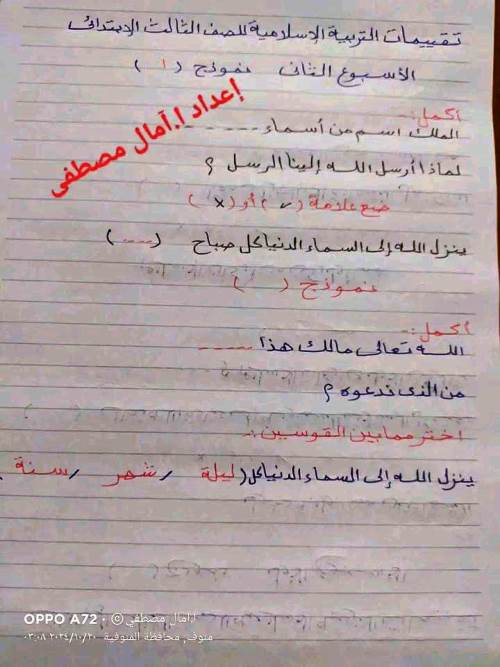 تقييمات التربية الإسلامية للصف الثالث الابتدائى
الأسبوع الثانى نموذج (١)
إعداد ا.آمال مصطفى
أكمل:-
الملك اسم من أسماء -----
لماذا أرسل الله إلينا الرسل ؟
ضع علامة (✓) أو (x)
ينزل الله إلى السماء الدنيا كل صباح (----)
نموذج ( )
أكمل:-
الله تعالى مالك هذا -----
من الذى ندعوه ؟
اختر مما بين القوسين :-
ينزل الله إلى السماء الدنيا كل (ليلة / شهر / سنة
OPPO A72 · © ا.امال مصطفي
منوف, محافظة المنوفية ٢٠٢٤/١٠/٢٠ ٠٣:٠٨